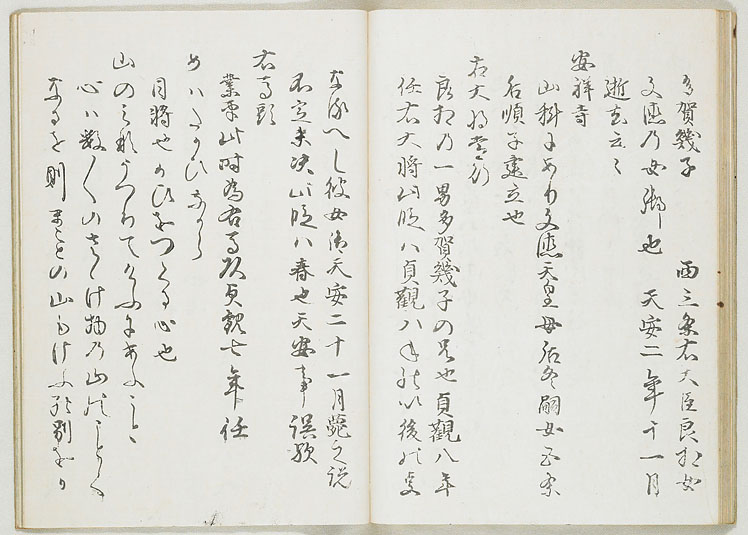 多賀幾子　西三条右大臣良相女
文徳乃女御也　天安二年十一月
逝去云々
安祥寺
山科にあり文徳天皇母后冬嗣女五条
后順子建立也
右大将常行
良相乃一男多賀幾子の兄也貞観八年
任右大将此段ハ貞観八年以後の事
なるへし彼女御天安二十一月薨之説
不定未決此段ハ春也天安事誤歟
右馬頭
業平此時為右馬頭貞観七年任
めハたかひなから
目将也
心也
山のみな
うつりて
けふにあふ
心ハ数々のさゝけ物乃山のことく
なるを則まことの山も